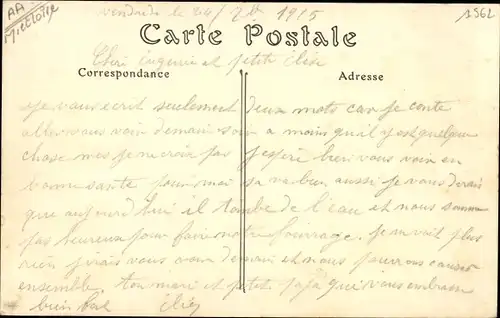 AA
1562
vendredi le 24/ 1915
Carte Postale
Cheri eugenie et petite
Correspondance
Adresse
Je vous ecrit seulement deux mots car je conte
aller vous voir demain soir a moins qu'il y est quelque
chose mes je ne croir pas J'esperé bien vous voir en
bonne sante pour moi sa va bien aussi je vous dirais
que aujourd hui il tombe de l'eau et nous somme
pas heureux pour faire notre fourrage. Je ne voit plus
rien vous demain et nous pourrons causer
ensemble. ton mari et petit papa qui vous embrasse
bien